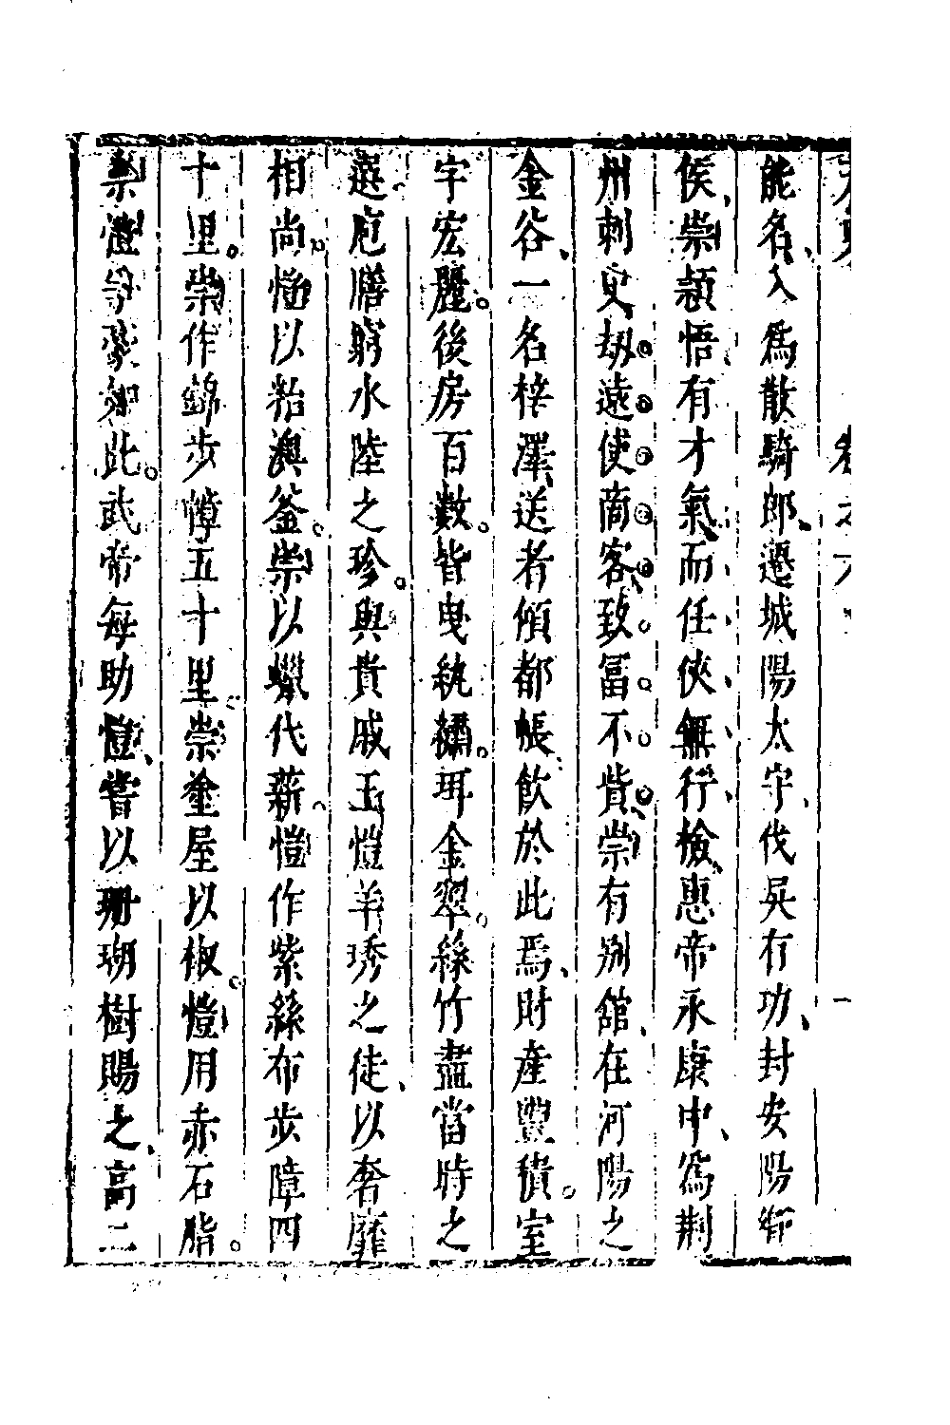 能名、入爲散騎郎、遷城陽太守、伐吳有功、封安陽鄉
侯、崇頴悟有才氣、而任俠無行檢、惠帝永康中、爲荆
州刺史、刼遠使商客、致冨不貲、崇有別舘、在河陽之
金谷、一名梓澤、送者傾都帳飮於此焉、財產豐積。室
宇宏麗。後房百數。皆曳紈繡。珥金翠。絲竹盡當時之
選。庖膳窮水陸之珍。與貴戚王愷羊琇之徒、以奢靡
相尚。愷以粭澳釜。崇以蠟代薪。愷作紫絲布步障四
十里。崇作錦步幛五十里。崇塗屋以椒。愷用赤石脂。
崇愷爭豪如此。武帝每助愷、嘗以珊瑚樹賜之、高二